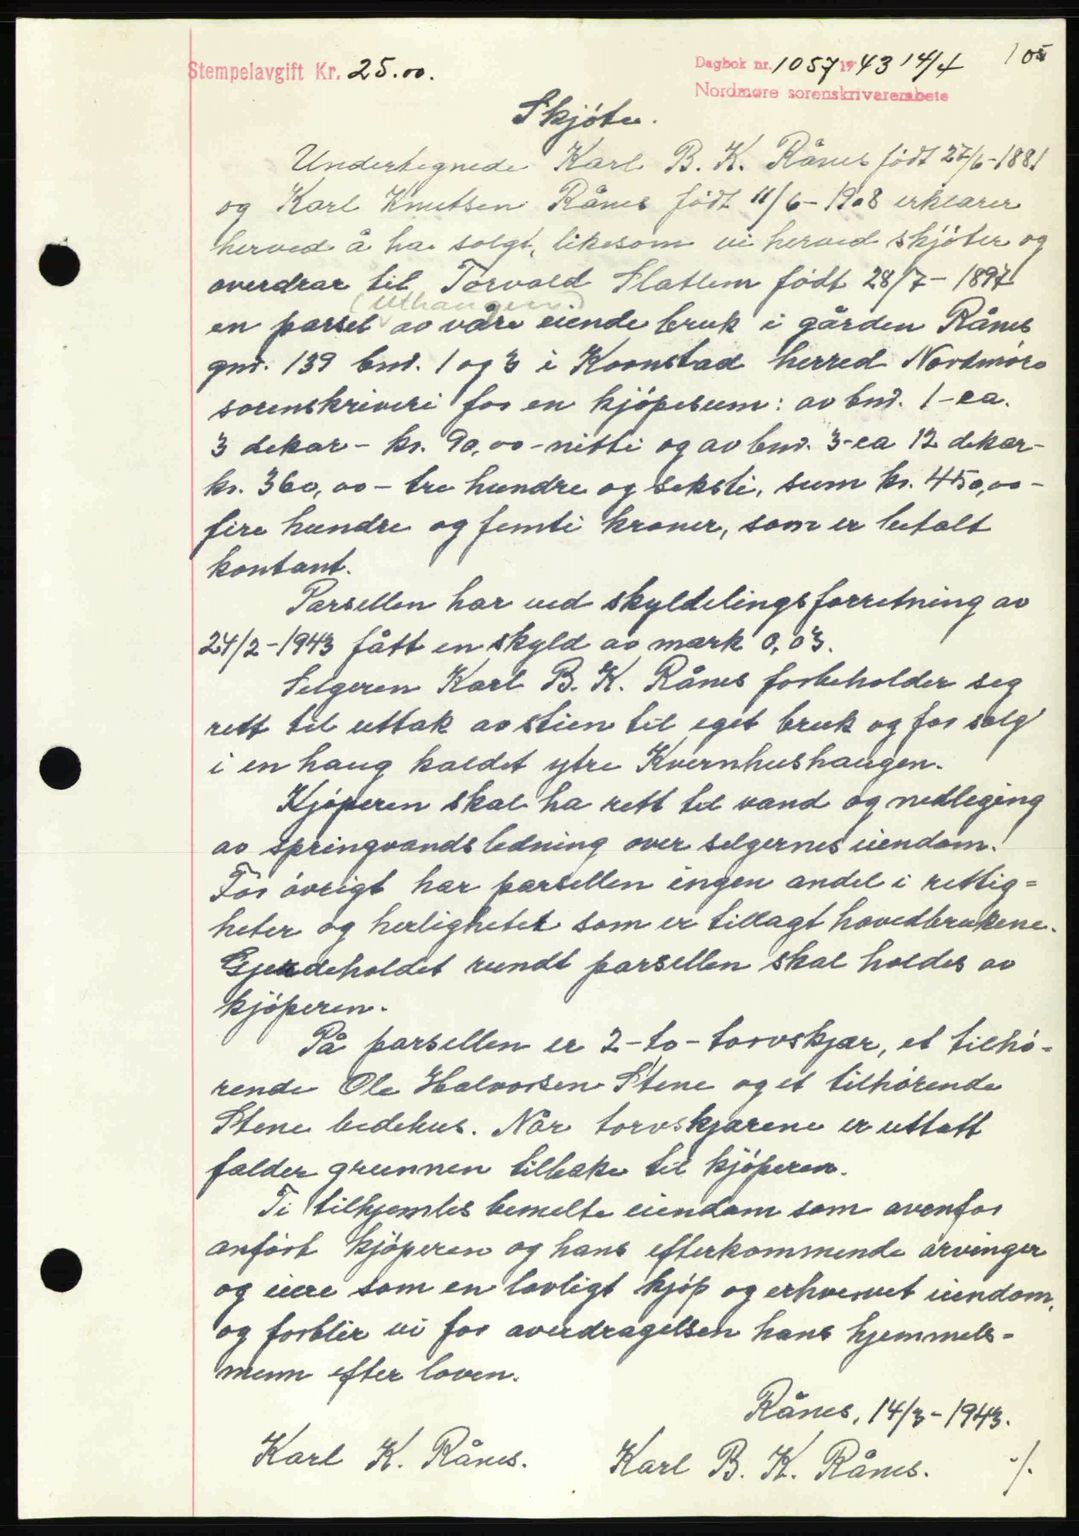 Stempelavgift Kr. 25.00.
Dagbok nr. 1057 1943 14/4
105
Nordmøre sorenskriverembete
Skjöte.
Undertegnede Karl B. K. Rånes födt 27/6-1881
og Karl Knutsen Rånes födt 11/6-1908 erklærer
herved å ha solgt, likesom vi herved skjöter og
overdrar til Torvald Slatlem födt 28/7-1897
(Uthaugen)
en parsel av våre eiende bruk i gården Rånes
gnr. 139 bnr. 1 og 3 i Kvernstad herred Nordmöre
sorenskriveri for en kjöpesum: av bnr. 1-ca.
3 dekar - kr. 90,00-nitti og av bnr. 3-ca 12 dekar-
kr. 360,00 - tre hundre og seksti, sum kr. 450,00-
fire hundre og femti kroner, som er betalt
kontant.
Parsellen har ved skyldelingsforretning av
24/2-1943 fått en skyld av mark 0,03.
Selgeren Karl B. K. Rånes forbeholder seg
rett til uttak av stien til eget bruk og for salg
i en haug kaldet ytre Kvernhushaugen.
Kjöperen skal ha rett til vand og nedleging
av springvandsledning over selgernes eiendom.
For övrigt har parsellen ingen andel i rettig=
heter og herligheter som er tillagt hovedbrukene.
Gjerdeholdet rundt parsellen skal holdes av
kjöperen.
På parsellen er 2-to-torvskjær, et tilhö-
rende Ole Halvorsen Stene og et tilhörende
Stene bedehus. Når torvskjærene er uttatt
falder grunnen tilbake til kjöperen.
Ti tilkjemles bemelte eiendom som ovenfor
anfört kjöperen og hans efterkommende arvinger
og eiere som en lovligt kjöp og erhvervet eiendom,
og forblir vi for overdragelsen hans hjemmels-
menn efter loven.
Rånes, 14/3-1943.
Karl K. Rånes. Karl B. K. Rånes. ./.